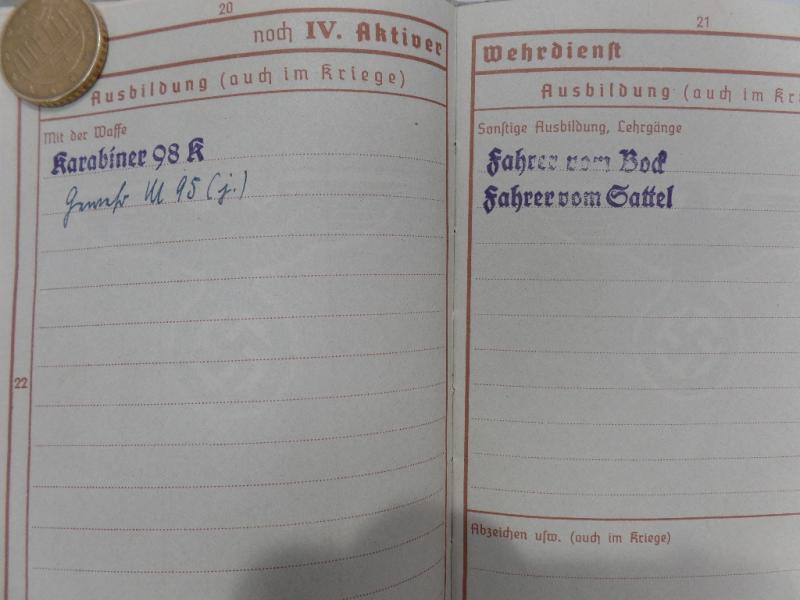 20
noch IV. Aktiver
Ausbildung (auch im Kriege)
Mit der Waffe
Karabiner 98 K
Gewehr M 95 (j.)
22
21
Wehrdienst
Ausbildung (auch im Kri
Sonstige Ausbildung, Lehrgänge
Fahrer vom Bock
Fahrer vom Sattel
Abzeichen usw. (auch im Kriege)